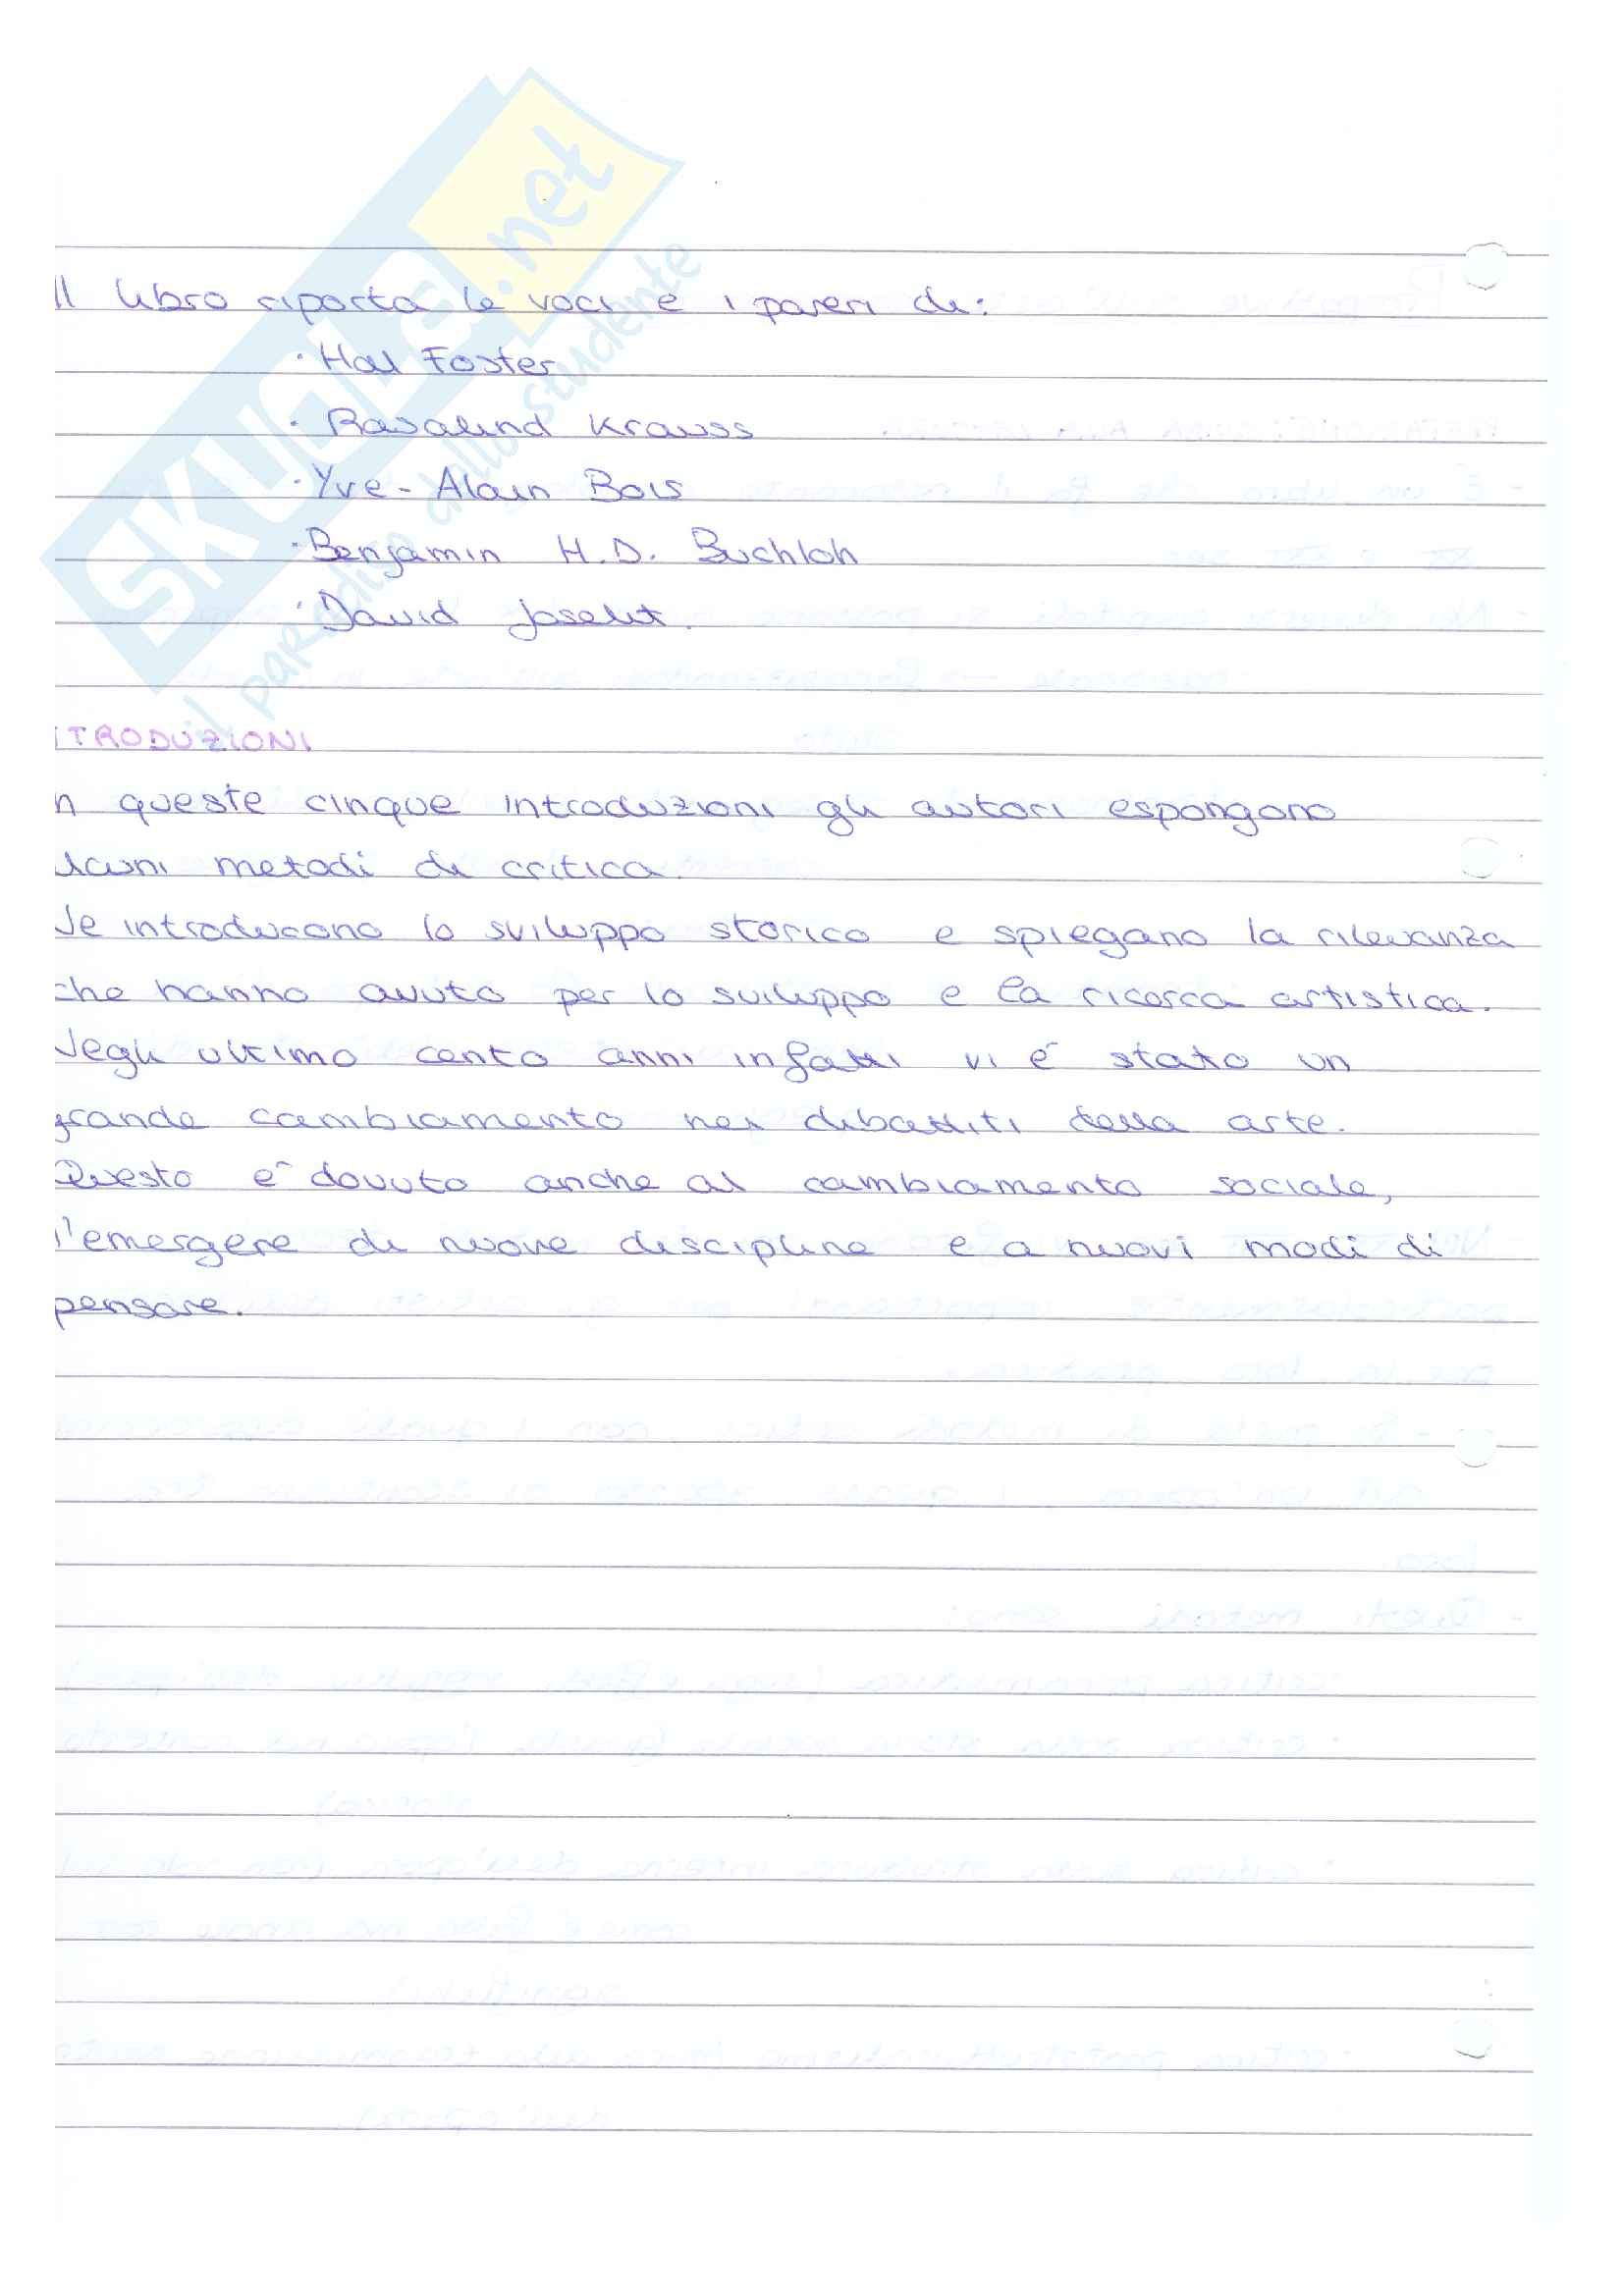 Il libro riporta le voci e i pareri di:
· Hal Foster
· Rosalind Krauss
· Yve-Alain Bois
· Benjamin H.D. Buchloh
· David Joselit.
TRODUZIONI
n queste cinque introduzioni gli autori espongono
lcuni metodi di critica.
Ne introducono lo sviluppo storico e spiegano la rilevanza
che hanno avuto per lo sviluppo e la ricerca artistica.
Negli ultimo cento anni infatti vi è stato un
grande cambiamento nei dibattiti della arte.
Questo è dovuto anche al cambiamento sociale,
l'emergere di nuove discipline e a nuovi modi di
pensare.
SKUOLA.net
il paradiso dello studente